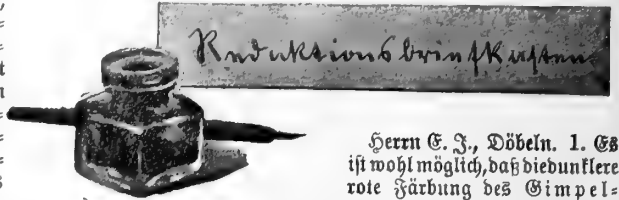 Redaktionsbriefkasten
Herrn E. J., Döbeln. 1. Es
ist wohl möglich, daß die dunklere
rote Färbung des Gimpel=